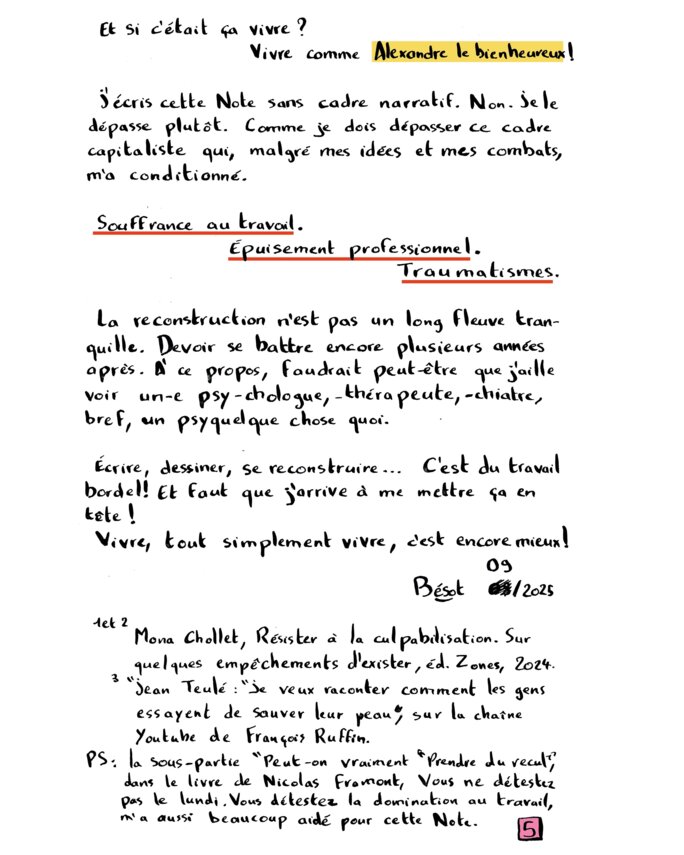 Et si c'était ça vivre ?
Vivre comme Alexandre le bienheureux !
J'écris cette Note sans cadre narratif. Non. Je le
dépasse plutôt. Comme je dois dépasser ce cadre
capitaliste qui, malgré mes idées et mes combats,
m'a conditionné.
Souffrance au travail.
Épuisement professionnel.
Traumatismes.
La reconstruction n'est pas un long fleuve tran-
quille. Devoir se battre encore plusieurs années
après. À ce propos, faudrait peut-être que j'aille
voir un-e psy-chologue, -thérapeute, -chiatre,
bref, un psyquelque chose quoi.
Écrire, dessiner, se reconstruire... C'est du travail
bordel! Et faut que j'arrive à me mettre ça en
tête !
Vivre, tout simplement vivre, c'est encore mieux!
09
Bésot /2025
1et 2
Mona Chollet, Résister à la culpabilisation. Sur
quelques empêchements d'exister, éd. Zones, 2024.
3 "Jean Teulé : "Je veux raconter comment les gens
essayent de sauver leur peau", sur la chaîne
Youtube de François Ruffin.
PS: la sous-partie "Peut-on vraiment "Prendre du recul",
dans le livre de Nicolas Framont, Vous ne détestez
pas le lundi. Vous détestez la domination au travail,
m'a aussi beaucoup aidé pour cette Note.
5